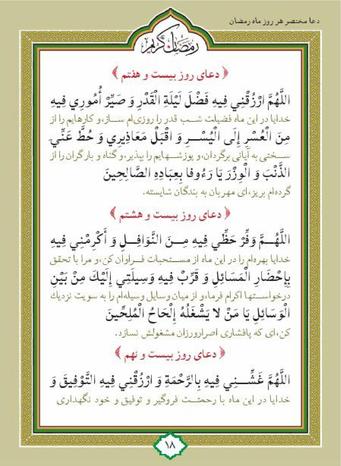 دعا مختصر هر روز ماه رمضان
رمضان کریم
﴿ دعای روز بیست و هفتم ﴾
اللَّهُمَّ ارْزُقْنِي فِيهِ فَضْلَ لَيْلَةِ الْقَدْرِ وَ صَيِّرْ أُمُورِي فِيهِ
خدایا در این ماه فضیلت شب قدر را روزی‌ام ساز،و کارهایم را از
مِنَ الْعُسْرِ إِلَى الْيُسْرِ وَ اقْبَلْ مَعَاذِيرِي وَ حُطَّ عَنِّيَ
سختی به آیانی برگردان،و پوزشهایم را بپذیر،و گناه و بار گران را از
الذَّنْبَ وَ الْوِزْرَ يَا رَءُوفا بِعِبَادِهِ الصَّالِحِينَ
گرده‌ام بریز،ای مهربان به بندگان شایسته.
﴿ دعای روز بیست و هشتم ﴾
اللَّهُمَّ وَفِّرْ حَظِّي فِيهِ مِنَ النَّوَافِلِ وَ أَكْرِمْنِي فِيهِ
خدایا بهره‌ام را در این ماه از مستحبات فراوان کن،و مرا با تحقق
بِإِحْضَارِ الْمَسَائِلِ وَ قَرِّبْ فِيهِ وَسِيلَتِي إِلَيْكَ مِنْ بَيْنِ
درخواستها اکرام فرما،و از میان وسایل وسیله‌ام را به سویت نزدیك
الْوَسَائِلِ يَا مَنْ لا يَشْغَلُهُ إِلْحَاحُ الْمُلِحِّينَ
کن،ای که پافشاری اصرارورزان مشغولش نسازد.
﴿ دعای روز بیست و نهم ﴾
اللَّهُمَّ غَشِّنِي فِيهِ بِالرَّحْمَةِ وَ ارْزُقْنِي فِيهِ التَّوْفِيقَ وَ
خدایا در این ماه با رحمتت فروگیر و توفیق و خود نگهداری
۱۸